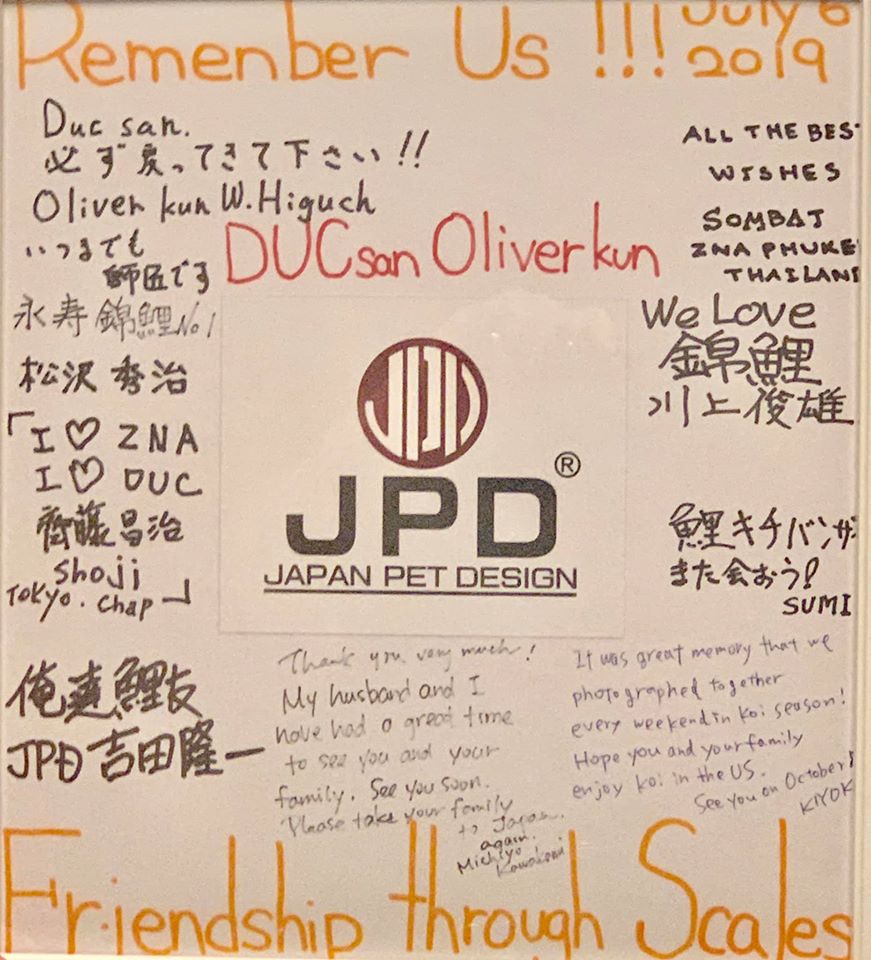 Remenber Us !!! July 6
2019
Duc san.
必ず戻ってきて下さい!!
Oliver kun W.Higuch
いつまでも
師匠です
永寿錦鯉No1
松沢秀治
「I ♡ ZNA
I ♡ DUC
齊藤昌治
Shoji
TOKYO. Chap」
俺達鯉友
JPD 吉田隆一
DUCsan Oliverkun
JPD®
JAPAN PET DESIGN
ALL THE BEST
WISHES
SOMBAT
ZNA PHUKE
THAILAND
We Love
錦鯉
川上俊雄
鯉キチバンザ
また会おう!
SUMI
Thank you very much!
My husband and I
have had a great time
to see you and your
family. See you soon.
Please take your family
to Japan.
again.
Michiyo
Kawakami
It was great memory that we
photographed together
every weekend in Koi season!
Hope you and your family
enjoy koi in the US.
See you on October!
KIYOK
Friendship through Scales